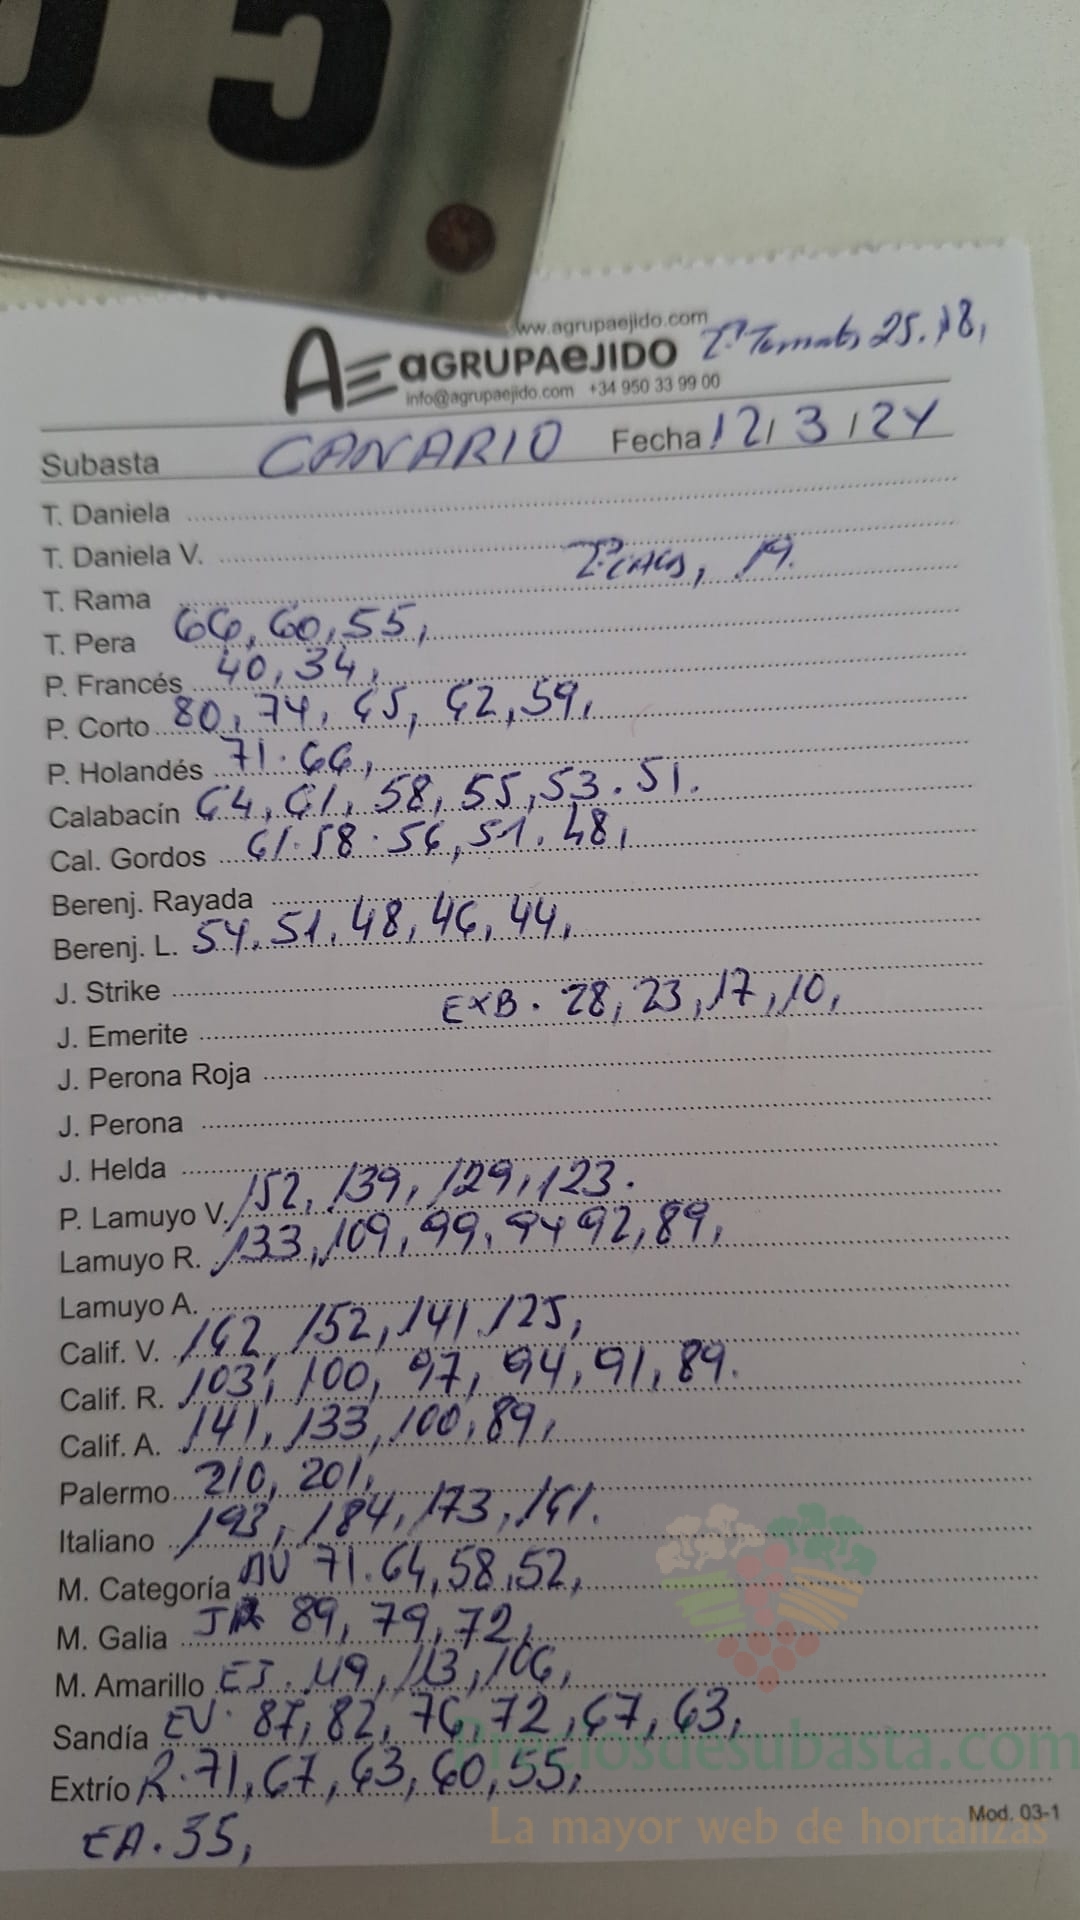 05
www.agrupaejido.com
AE aGRUPAeJIDO 25.18,
info@agrupaejido.com +34 950 33 99 00
Subasta CANARIO Fecha 12/3/24
T. Daniela
T. Daniela V.
19.
T. Rama
T. Pera 66, 60, 55,
P. Francés 40, 34,
P. Corto 80, 74, 65, 62, 59,
P. Holandés 71. 66,
Calabacín 64, 61, 58, 55, 53. 51.
Cal. Gordos 61. 58. 56, 51. 48,
Berenj. Rayada
Berenj. L. 54, 51, 48, 46, 44,
J. Strike
EXB. 28, 23, 17, 10,
J. Emerite
J. Perona Roja
J. Perona
J. Helda
P. Lamuyo V. 152, 139, 129, 123.
Lamuyo R. 133, 109, 99, 94 92, 89,
Lamuyo A.
Calif. V. 162, 152, 141, 125,
Calif. R. 103, 100, 97, 94, 91, 89.
Calif. A. 141, 133, 100, 89,
Palermo 210, 201,
Italiano 193, 184, 173, 161.
M. Categoría AV 71. 64, 58, 52,
M. Galia 89, 79, 72,
M. Amarillo EJ. 119, 113, 106,
Sandía EV. 87, 82, 76, 72, 67, 63,
Extrío R. 71, 67, 63, 60, 55,
EA. 35,
Preciosdesubasta.com
La mayor web de hortalizas
Mod. 03-1